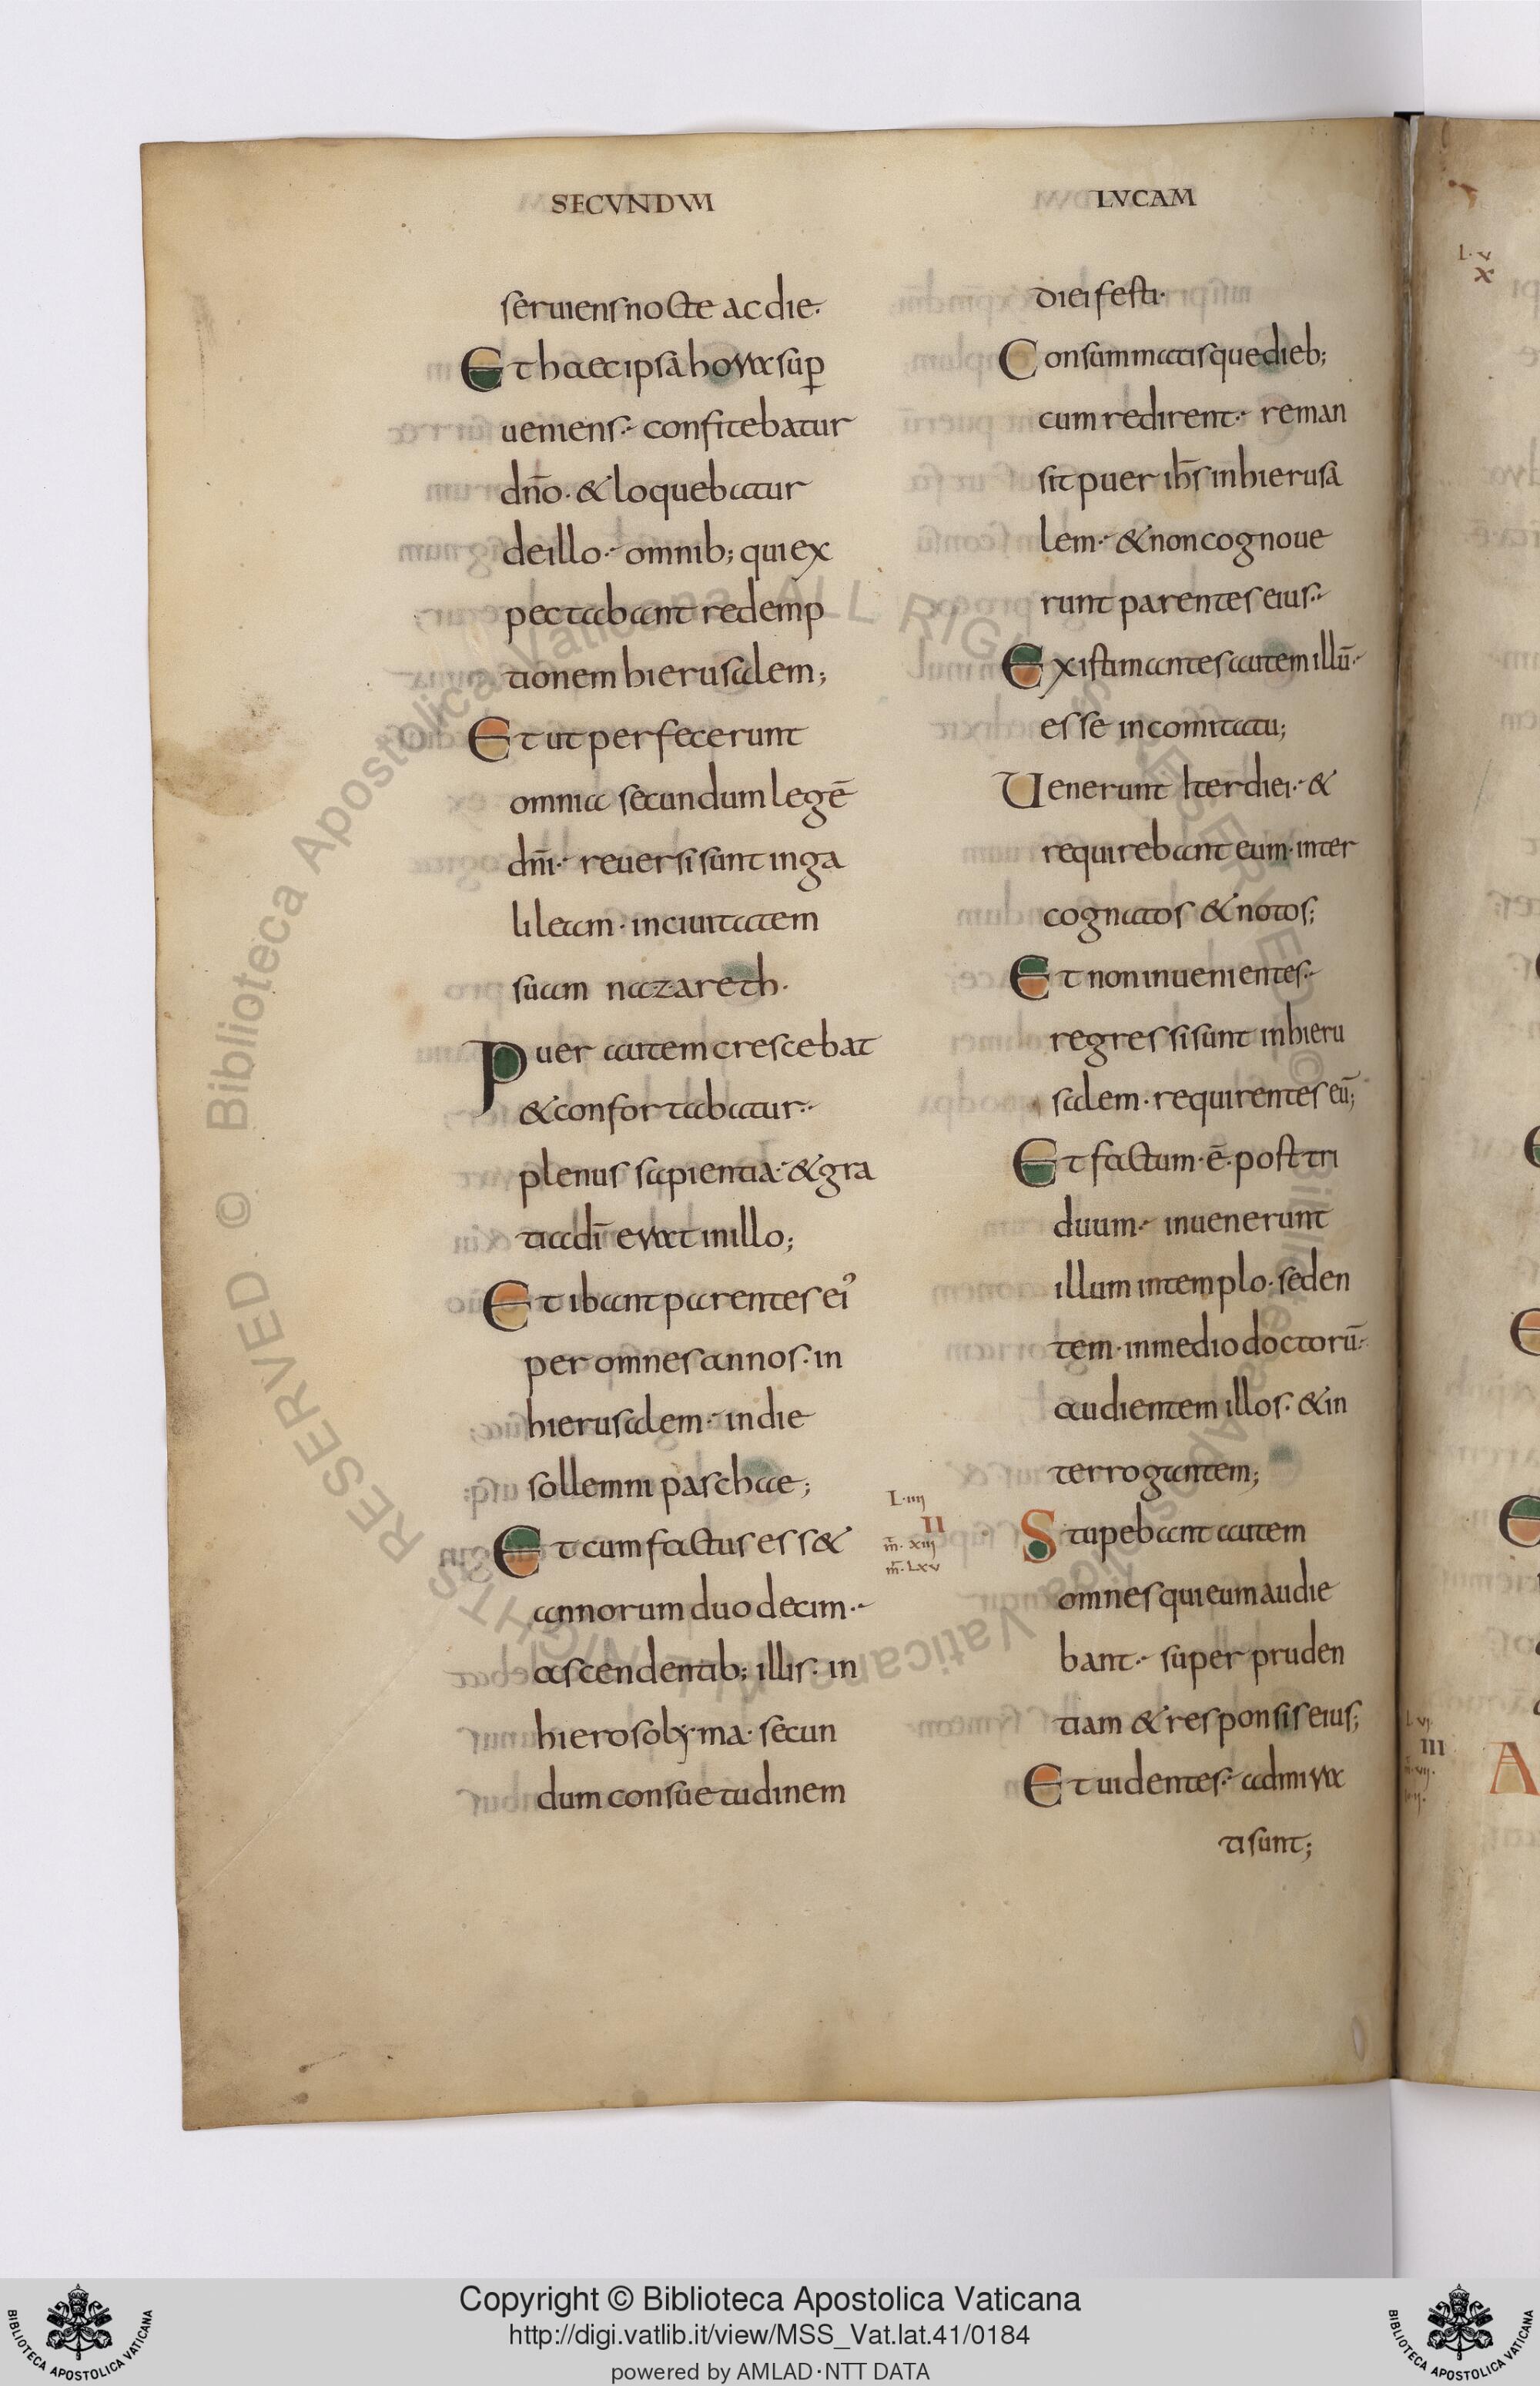 SECVNDVM
LVCAM
seruiens nocte ac die·
Et haec ipsa hora sup̄
ueniens· confitebatur
dn̄o· & loquebatur
de illo· omnib; qui ex
pectabant redemp
tionem hierusalem;
Et ut perfecerunt
omnia secundum legē
dn̄i· reuersi sunt in ga
lileam· in ciuitatem
suam nazareth·
Puer autem crescebat
& confortabatur·
plenus sapientia· & gra
tia dī erat in illo;
Et ibant parentes ei᾽
per omnes annos· in
hierusalem· in die
sollemni paschae;
Et cum factus ess&
annorum duodecim·
ascendentib; illis· in
hierosolyma· secun
dum consuetudinem
diei festi·
Consummatisque dieb;
cum redirent· reman
sit puer ihs̄ in hierusa
lem· & non cognoue
runt parentes eius·
Existimantes autem illū·
esse in comitatu;
Uenerunt iter diei· &
requirebant eum· inter
cognatos & notos;
Et non inuenientes·
regressi sunt in hieru
salem· requirentes eū;
Et factum· ē· post tri
duum· inuenerunt
illum in templo· seden
tem· in medio doctorū·
audientem illos· & in
terrogantem;
L· iiii
II
m̄· xiii
m̄· Lxv
Stupebant autem
omnes qui eum audie
bant· super pruden
tiam & responsis eius;
Et uidentes· admira
ti sunt;
L· v
x
L· vi
III
A
Copyright © Biblioteca Apostolica Vaticana
http://digi.vatlib.it/view/MSS_Vat.lat.41/0184
powered by AMLAD·NTT DATA
BIBLIOTECA APOSTOLICA VATICANA
BIBLIOTECA APOSTOLICA VATICANA